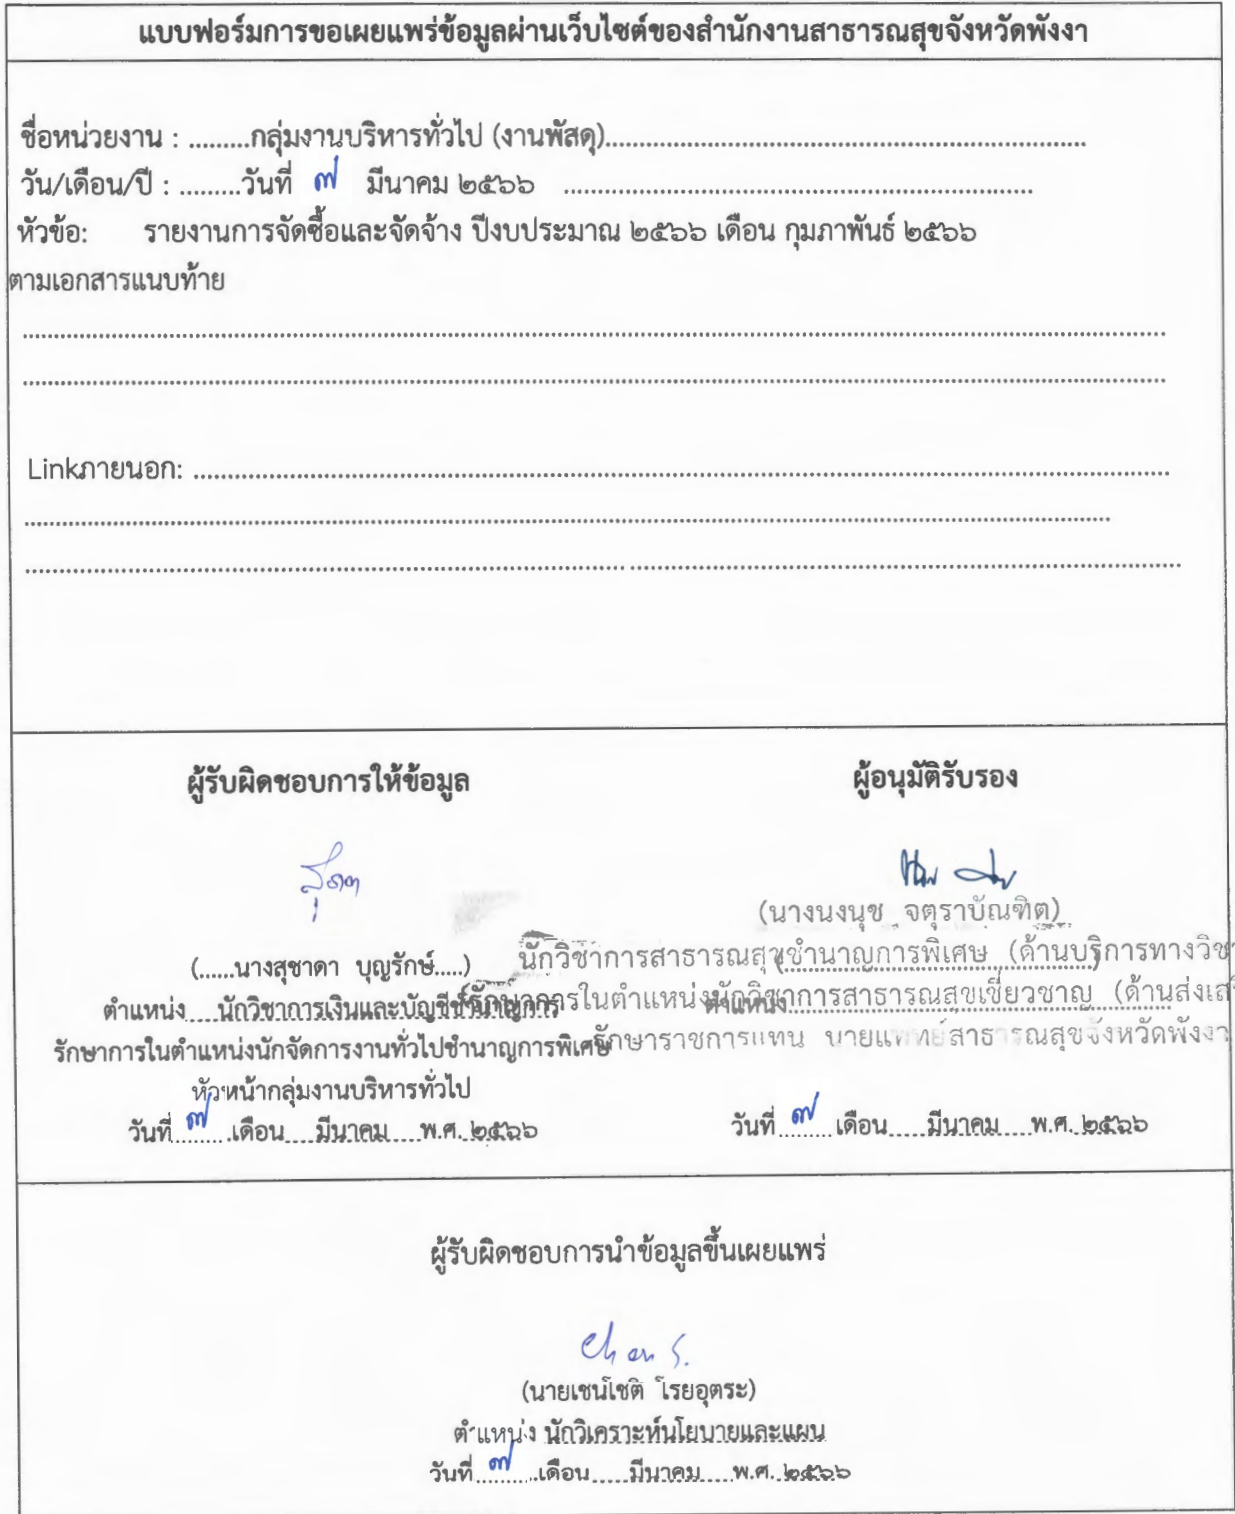 แบบฟอร์มการขอเผยแพร่ข้อมูลผ่านเว็บไซต์ของสำนักงานสาธารณสุขจังหวัดพังงา
ชื่อหน่วยงาน : .........กลุ่มงานบริหารทั่วไป (งานพัสดุ)..........
วัน/เดือน/ปี : .........วันที่ ๗ มีนาคม ๒๕๖๖ ..........
หัวข้อ: รายงานการจัดซื้อและจัดจ้าง ปีงบประมาณ ๒๕๖๖ เดือน กุมภาพันธ์ ๒๕๖๖
ตามเอกสารแนบท้าย
Linkภายนอก: ..........
ผู้รับผิดชอบการให้ข้อมูล
สุชาดา
(......นางสุชาดา บุญรักษ์.....)
ตำแหน่ง.....นักวิชาการเงินและบัญชีชำนาญการ
รักษาการในตำแหน่งนักจัดการงานทั่วไปชำนาญการพิเศษ
หัวหน้ากลุ่มงานบริหารทั่วไป
วันที่ ๗ เดือน.....มีนาคม.....พ.ศ. ๒๕๖๖
ผู้อนุมัติรับรอง
(นางนงนุช จตุราบัณฑิต)
นักวิชาการสาธารณสุขชำนาญการพิเศษ (ด้านบริการทางวิชา
รักษาการในตำแหน่งนักวิชาการสาธารณสุขเชี่ยวชาญ (ด้านส่งเสริ
ตำแหน่ง
รักษาราชการแทน นายแพทย์สาธารณสุขจังหวัดพังงา
วันที่ ๗ เดือน.....มีนาคม.....พ.ศ. ๒๕๖๖
ผู้รับผิดชอบการนำข้อมูลขึ้นเผยแพร่
Chen S.
(นายเชนโชติ โรยอุตระ)
ตำแหน่ง นักวิเคราะห์นโยบายและแผน
วันที่ ๗ เดือน.....มีนาคม.....พ.ศ. ๒๕๖๖